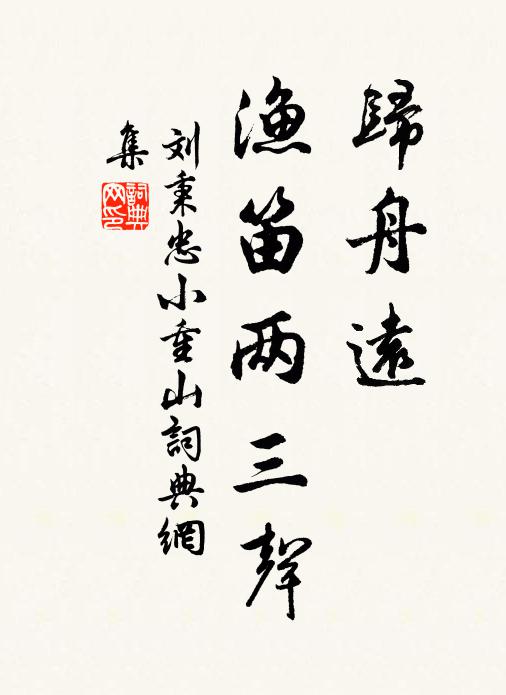 歸舟遠
漁笛两三聲
刘秉忠小重山詞典網
集
詞典
网印